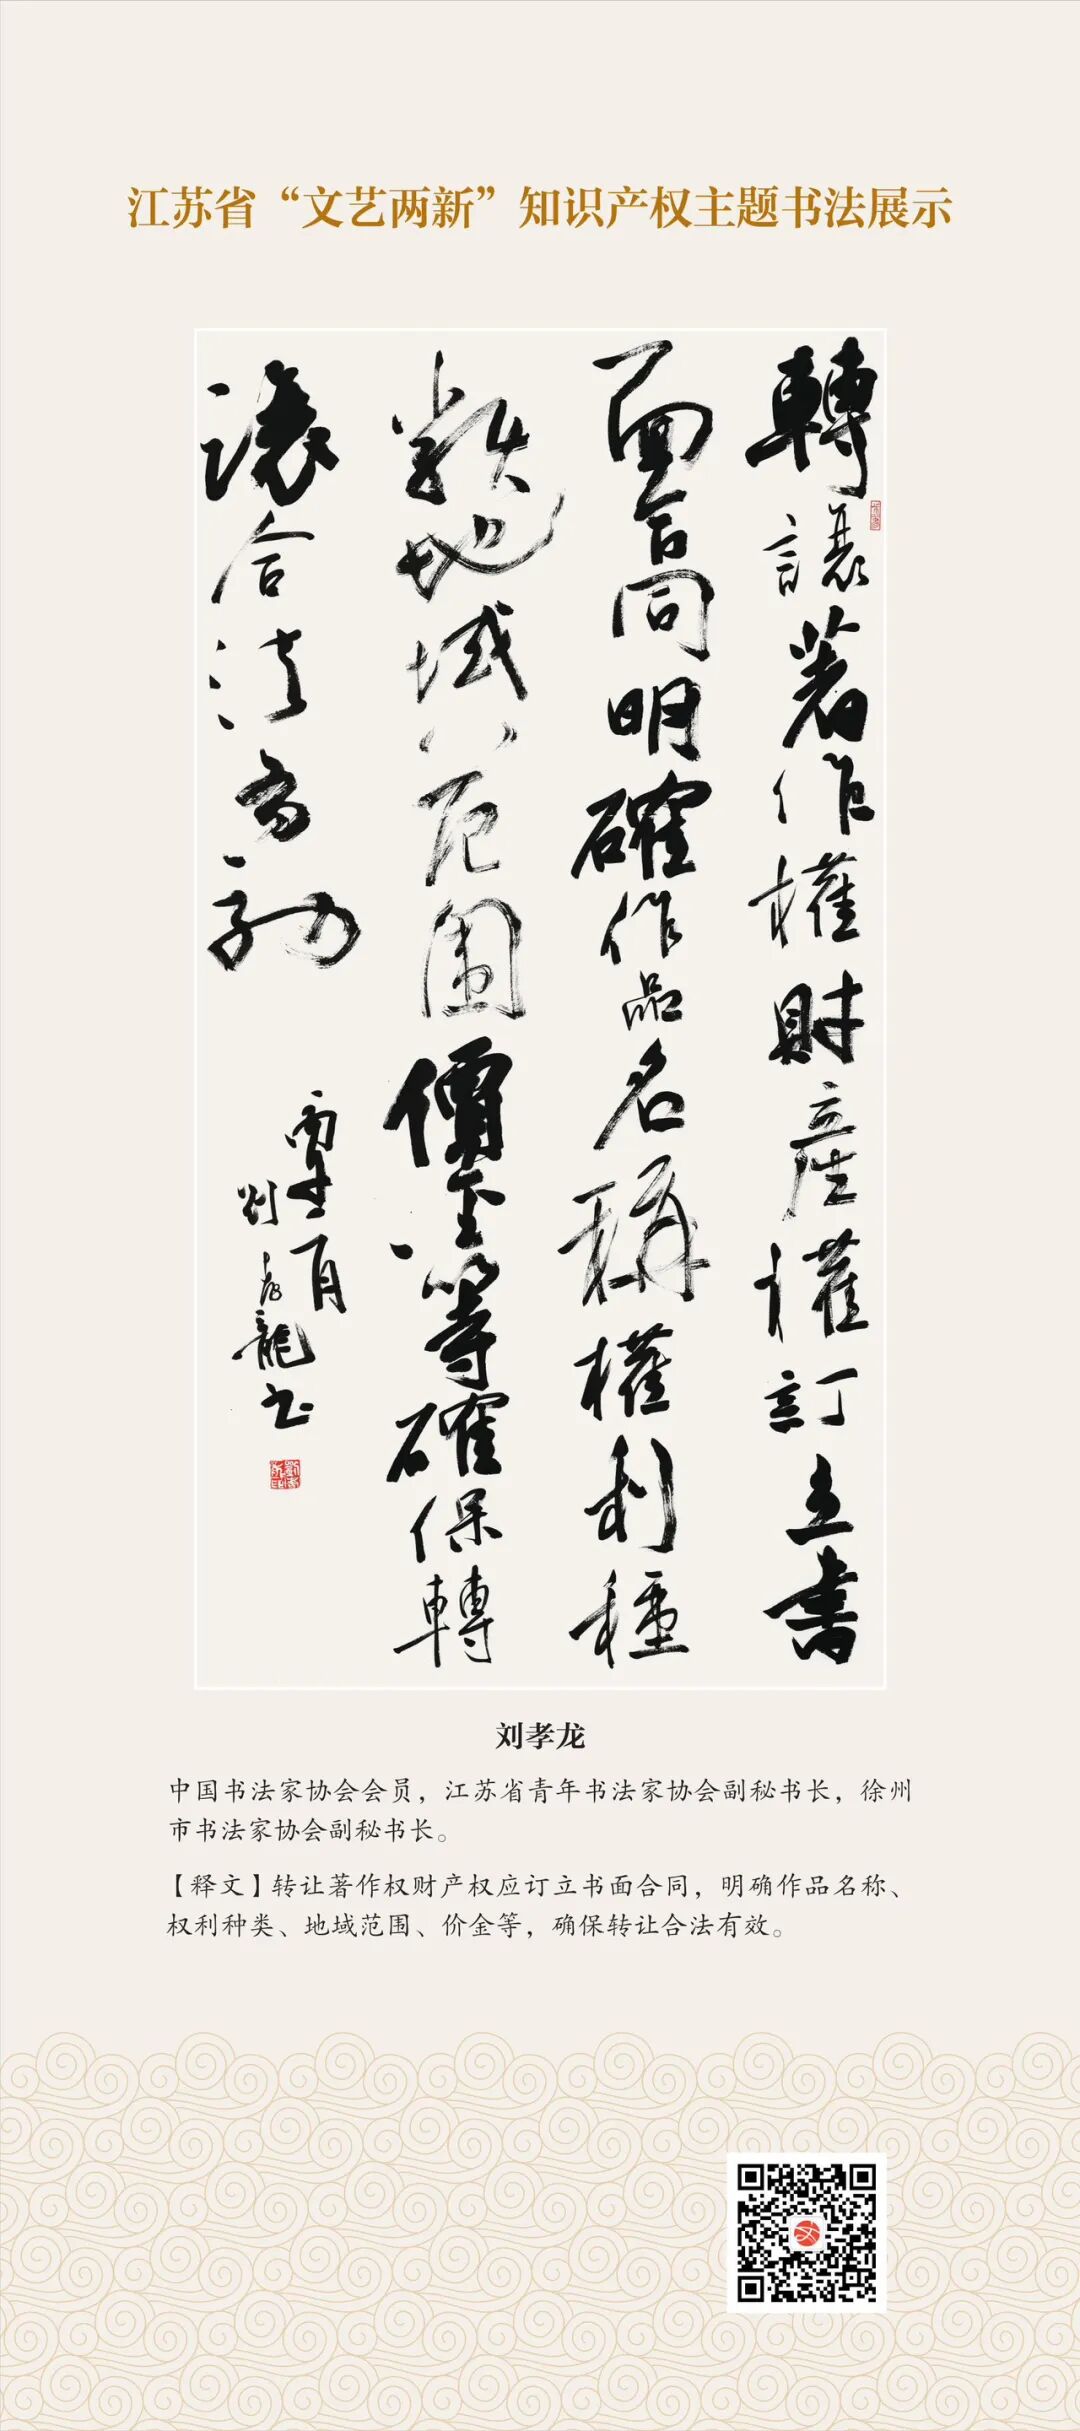 江苏省“文艺两新”知识产权主题书法展示
轉讓著作權財産權訂立書
面合同明確作品名稱權利種
類地域范圍價金等確保轉
讓合法有效
劉孝龍书
刘孝龙
中国书法家协会会员，江苏省青年书法家协会副秘书长，徐州
市书法家协会副秘书长。
【释文】转让著作权财产权应订立书面合同，明确作品名称、
权利种类、地域范围、价金等，确保转让合法有效。